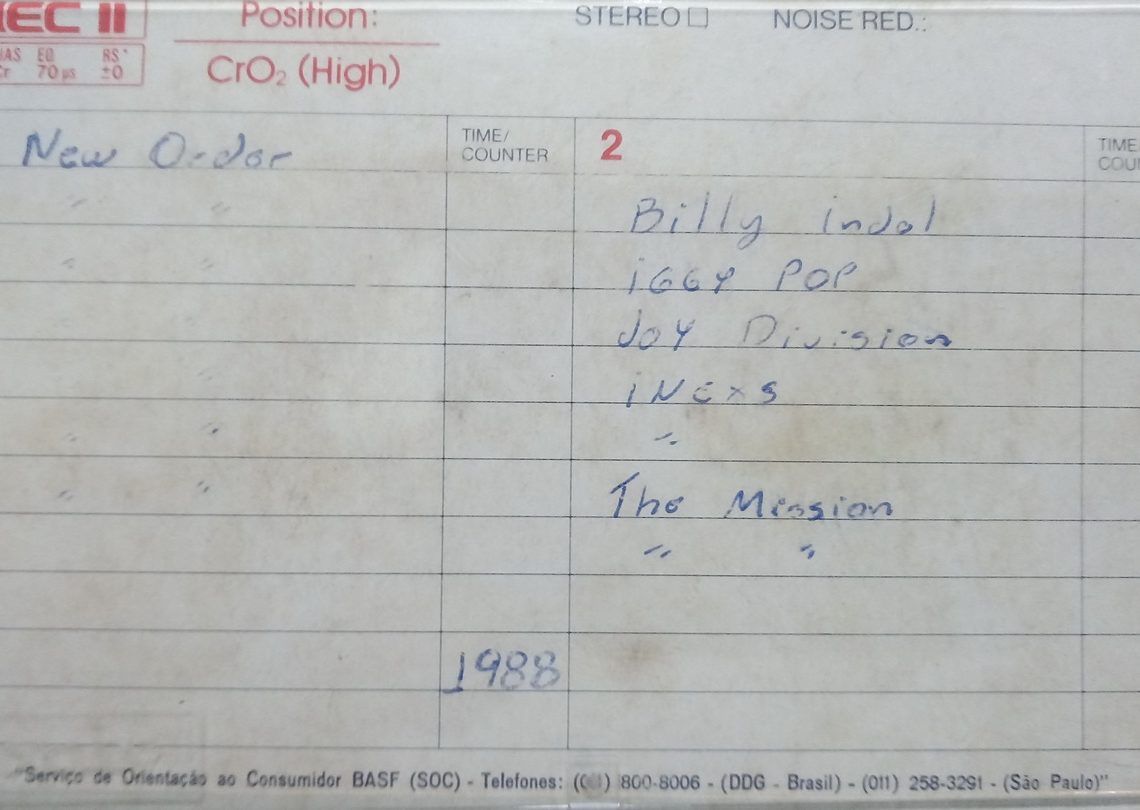 IEC II
Position:
STEREO
NOISE RED.:
EQ RS
70 µs ±0
CrO₂ (High)
New Order
TIME/
COUNTER
2
TIME
" "
Billy indol
" "
iGGY POP
" "
JOY Division
"
iNEXS
" "
"
" "
The Mission
" "
1988
"Serviço de Orientação ao Consumidor BASF (SOC) - Telefones: 800-8006 - (DDG - Brasil) - (011) 258-3291 - (São Paulo)"